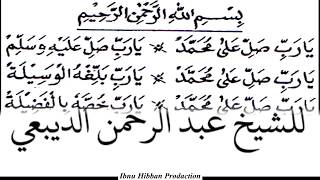 بِسْمِ اللهِ الرَّحْمٰنِ الرَّحِيْمِ
يَارَبِّ صَلِّ عَلٰى مُحَمَّدْ ❊ يَارَبِّ صَلِّ عَلَيْهِ وَسَلِّمْ
يَارَبِّ صَلِّ عَلٰى مُحَمَّدْ ❊ يَارَبِّ بَلِّغْهُ الْوَسِيْلَةْ
يَارَبِّ صَلِّ عَلٰى مُحَمَّدْ ❊ يَارَبِّ خُصَّهُ بِالْفَضِيْلَةْ
للشيخ عبد الرحمن الديبعي
Ibnu Hibban Production